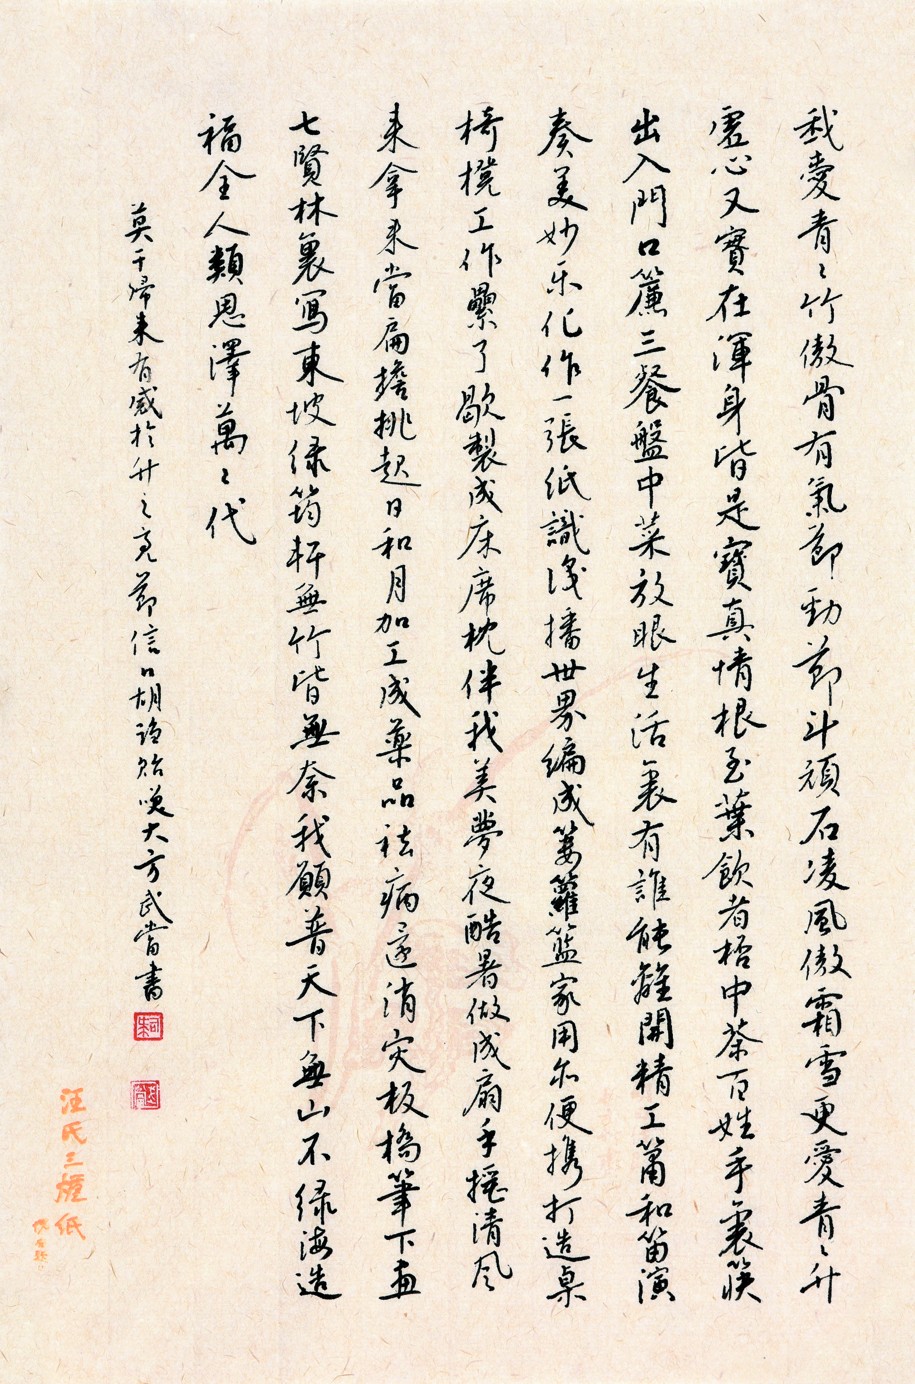 我愛青〻竹傲骨有氣節勁節斗頑石凌風傲霜雪更愛青〻竹
虛心又實在渾身皆是寶真情根至葉飲者杯中茶百姓手裏筷
出入門口簾三餐盤中菜放眼生活裏有誰能離開精工簫和笛演
奏美妙乐化作一張紙識浅播世界編成篓籮籃家用尓便携打造桌
椅櫈工作纍了歇製成床席枕伴我美夢夜酷暑做成扇手摇清风
来拿来當扁擔挑起日和月加工成藥品祛病還消灾板橋筆下画
七賢林裏寫東坡绿筠軒無竹皆無奈我願普天下無山不绿海造
福全人類恩澤萬〻代
莫干歸来有感於竹之亮節信口胡謅貽笑大方武當書
汪氏三煙紙